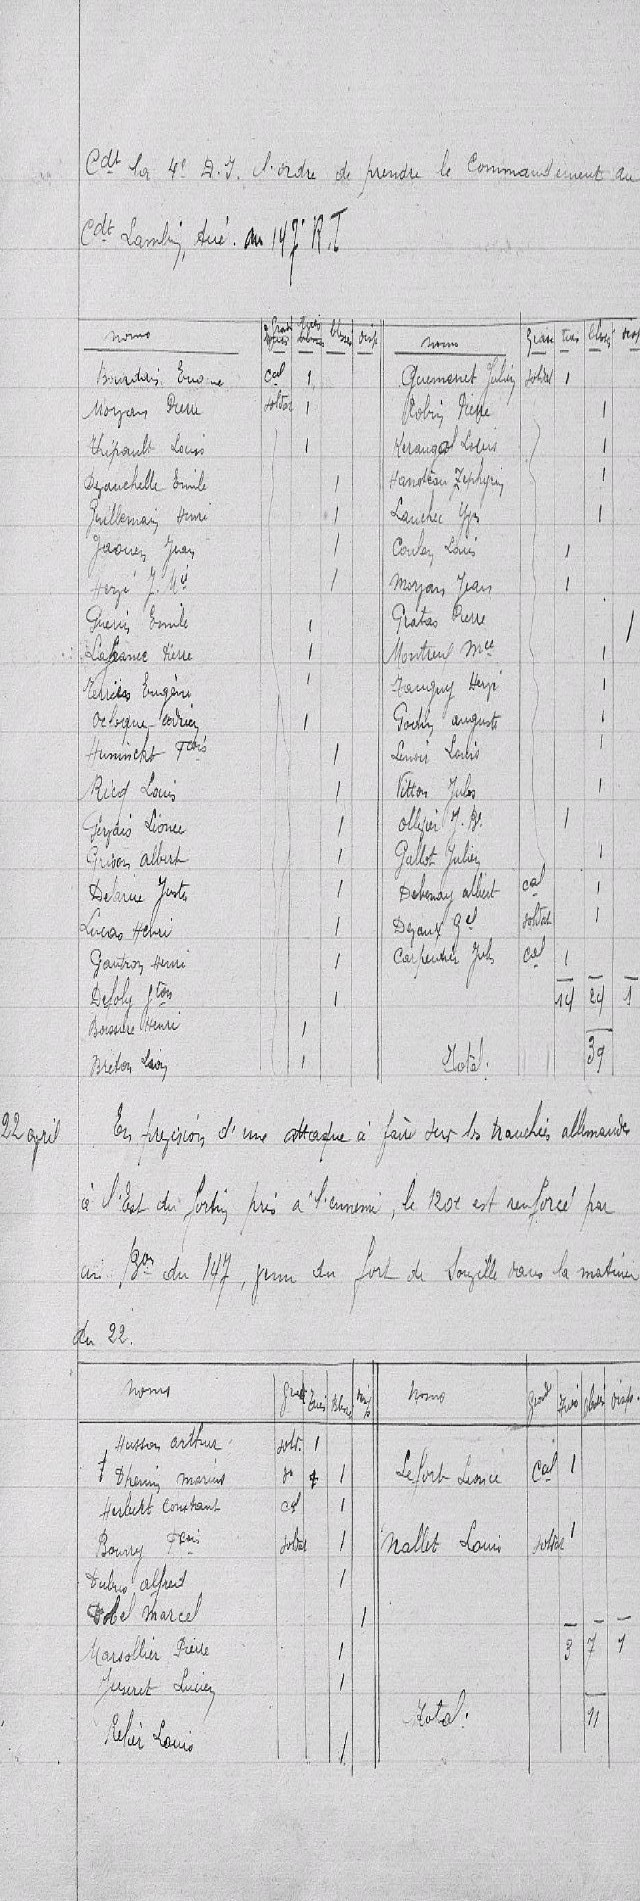 Cdt la 4e D.I. l'ordre de prendre le Commandement du
Cdt Lambin, tué. au 147e R I
noms Grades tués blessés disp noms Grade tués blessés disp
Bourdais Eugène cal 1 Quemenet Julien soldat 1
Morzan Pierre soldat 1 Robin Pierre 1
Thépault Louis 1 Kerangal Louis 1
Dezauchelle Emile 1 Hanoteau Zéphyrin 1
Guillemain Henri 1 Lanchec Yves 1
Jaouen Jean 1 Coulon Louis 1
Hervé J. Mie 1 Morzan Jean 1
Guérin Emile 1 Gratas Pierre 1
Lagranec Pierre 1 Montreuil Mce 1
Terrien Eugène 1 Tanguy Hervé 1
Ocloque Adrien 1 Godin auguste 1
Huminckt Fçois 1 Lenoir Louis 1
Ricol Louis 1 Vitton Jules 1
Gervais Léonce 1 ollivier J. Be 1
Grison albert 1 Gallot Julien 1
Delarue Juste 1 Debenay albert cal 1
Lucas Henri 1 Dezaux Gel soldat 1
Gautron Henri 1 Carpentier Jules cal 1
Defoly Gton 1 14 24 1
Boissière Henri 1
Breton Léon 1 Total: 39
22 avril En prévision d'une attaque à faire sur les tranchées allemandes
à l'Est du fortin pris à l'ennemi, le 120e est renforcé par
un Bon du 147, venu du fort de Souville dans la matinée
du 22.
noms Grade Tués Blessés Disp noms Grade Tués blessés Disp.
Husson arthur solt. 1
† Dhenin marius do 1 Lefort Léonce Cal 1
Herbert Constant cal 1
Bourry Fçois soldat 1 Mallet Louis soldat 1
Dubus alfred 1
Dobel marcel 1
Marsollier Pierre 1 3 7 1
Jeuneret Lucien 1
Total: 11
Relier Louis 1